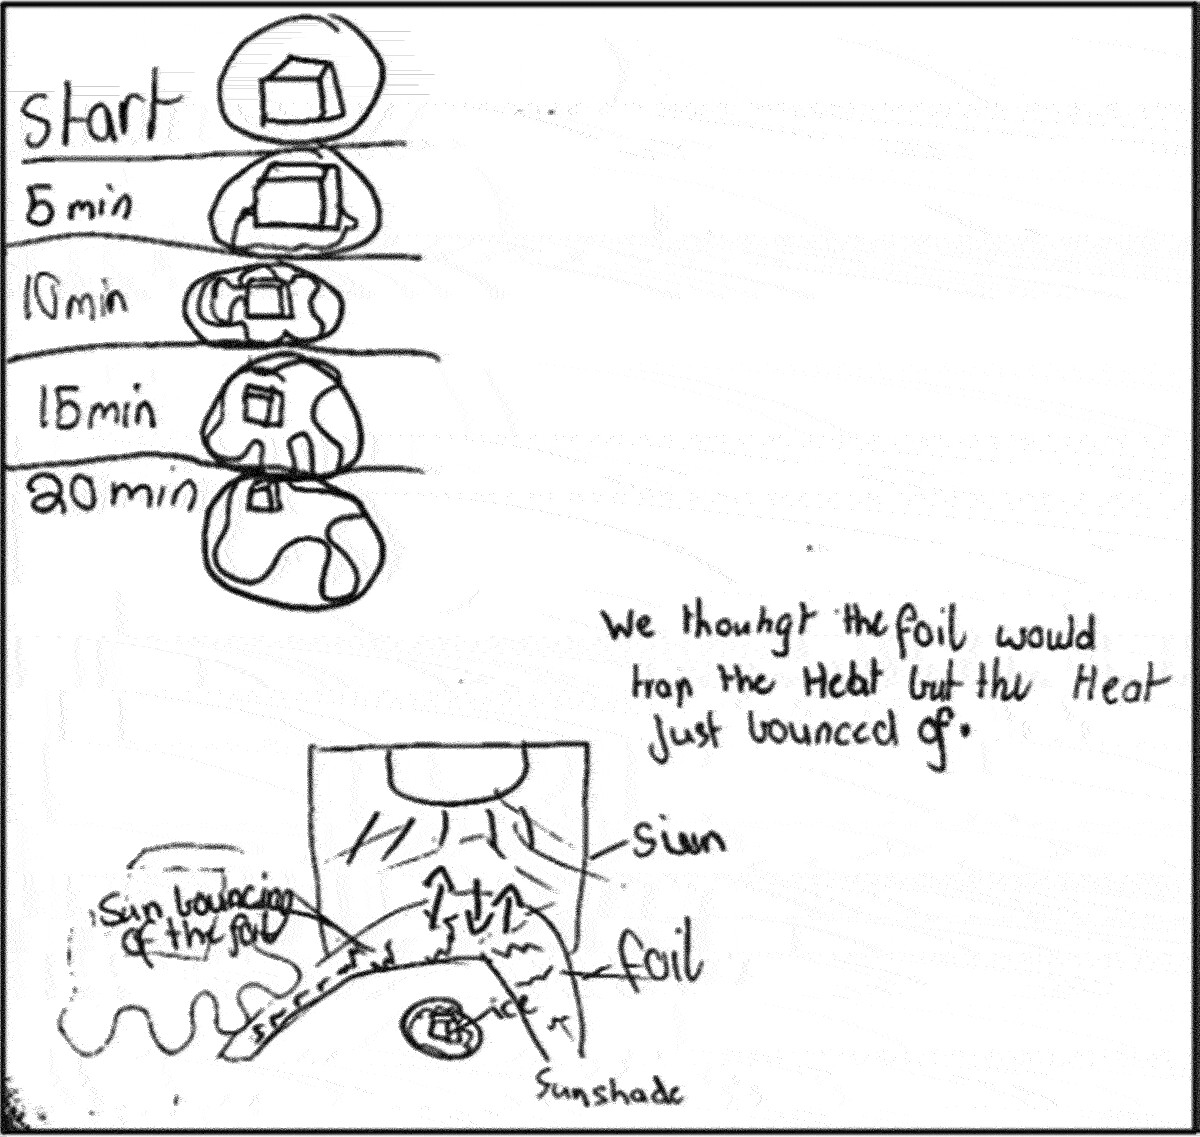 start
5 min
10 min
15 min
20 min
We thouhgt the foil would
trap the Heat but the Heat
Just bounced of.
Siun
Sun bouncing
of the foil
foil
ice
Sunshade